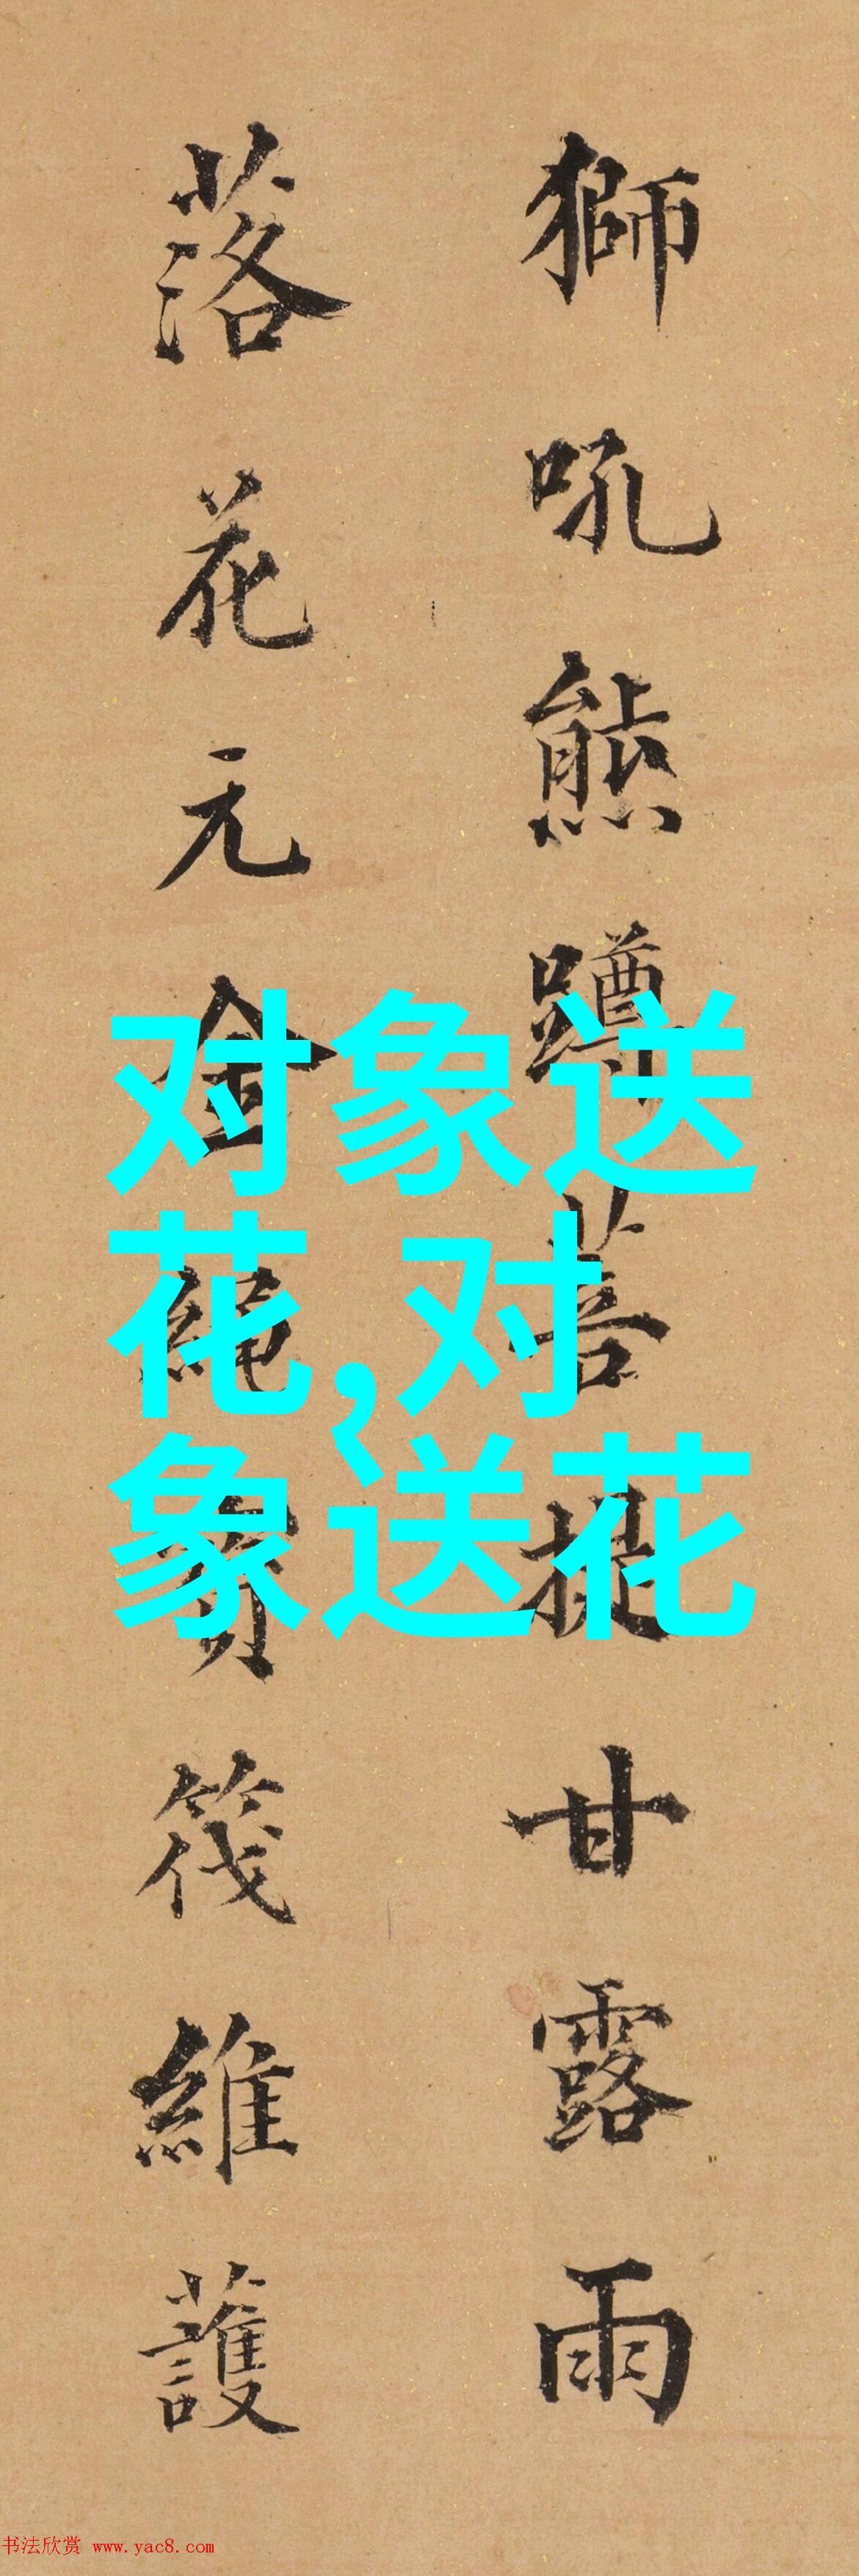 獅吼熊蹲菩提甘露雨
落花元金繩寶筏維護
对象送
花,对
象送花
书法欣赏 www.yac8.com